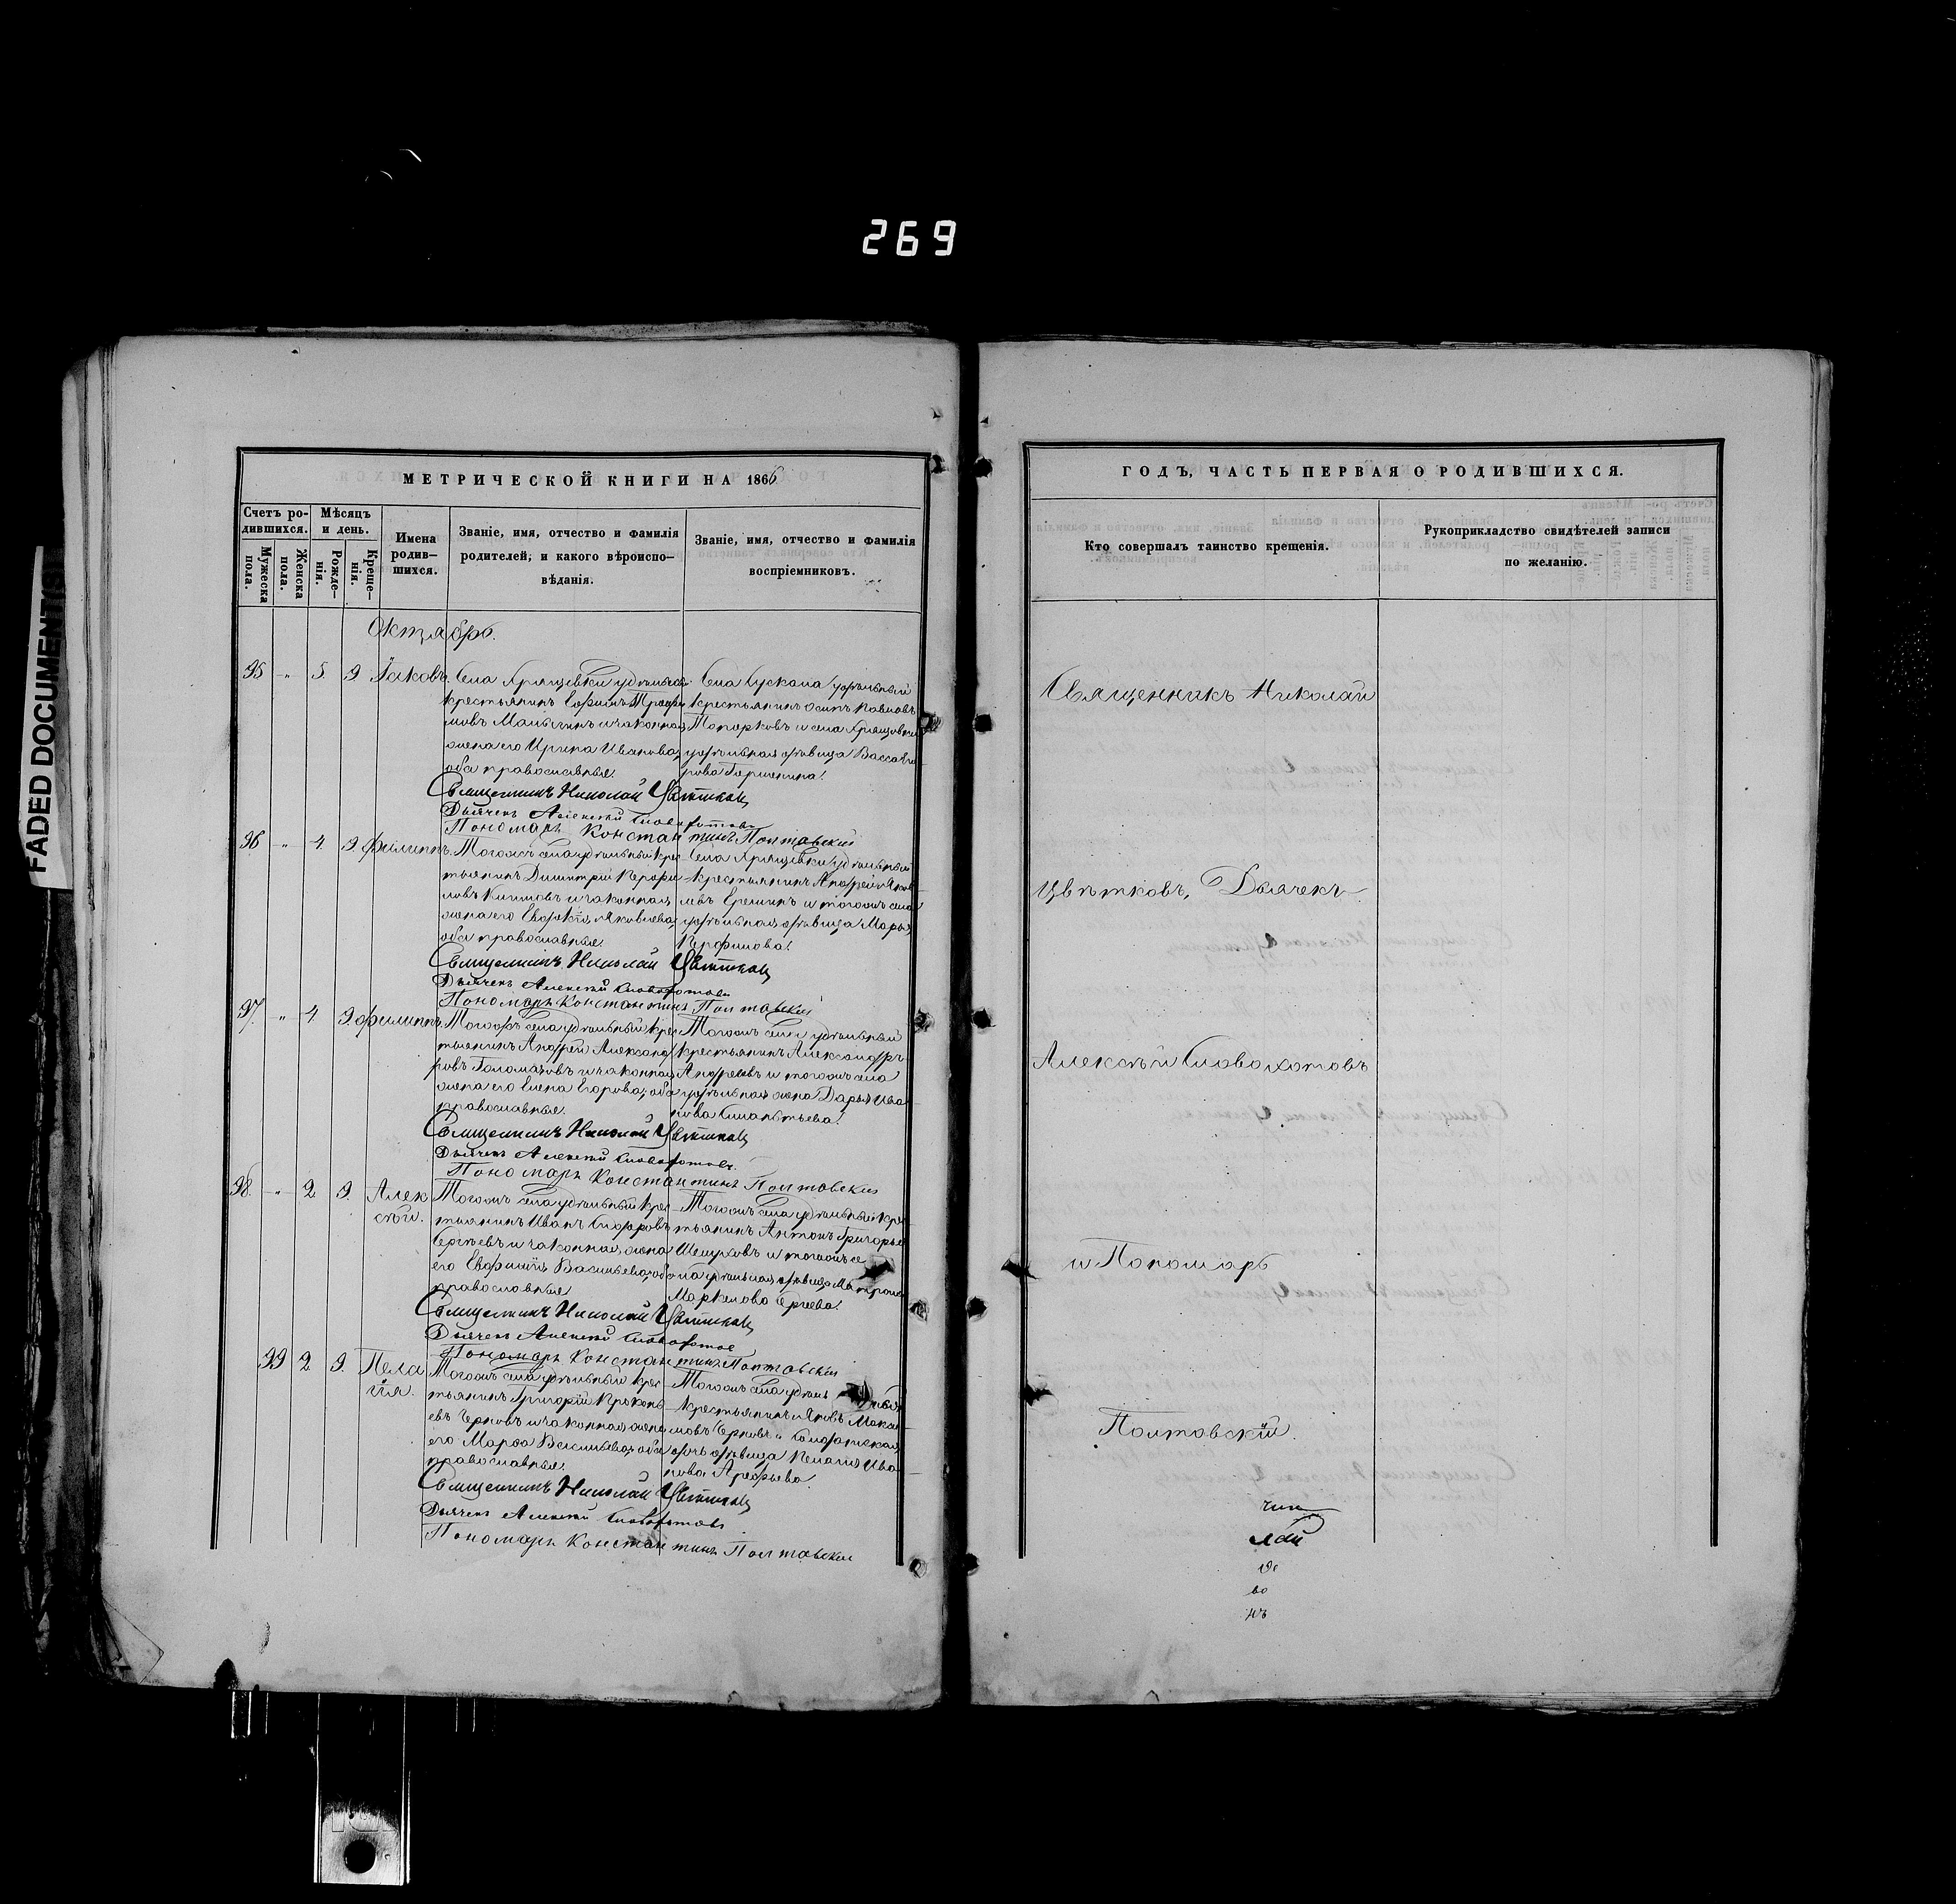 269
FADED DOCUMENT(S)
МЕТРИЧЕСКОЙ КНИГИ НА 1866
Счетъ ро-
дившихся.
Мужеска
пола.
Женска
пола.
Мѣсяцъ
и день.
Рожде-
нія.
Креще-
нія.
Имена
родив-
шихся.
Званіе, имя, отчество и фамилія
родителей, и какого вѣроиспо-
вѣданія.
Званіе, имя, отчество и фамилія
воспріемниковъ.
Октябрь.
95 " 5. 9 Іаковъ.
Села Хрящевки удѣльный
крестьянинъ Ефимъ Трофи
мовъ Малыгинъ и законная
жена его Ирина Иванова,
оба православные.
Села Сускана удѣльный
крестьянинъ Осипъ Павловъ
Топорковъ и села Хрящевки
удѣльная дѣвица Васса Его
рова Горшенина.
Священникъ Николай Цвѣтковъ
Дьячекъ Алексѣй Словохотовъ
Пономарь Константинъ Полтавскій
96 " 4. 9 Филиппъ.
Тогожъ села удѣльный крес
тьянинъ Димитрій Перфи
ловъ и законная
жена его Евдокія Яковлева,
оба православные.
Села Хрящевки удѣльный
крестьянинъ Андрей Яков
левъ Еремин и тогожъ села
удѣльная дѣвица Марья
Перфилова.
Священникъ Николай Цвѣтковъ
Дьячекъ Алексѣй Словохотовъ
Пономарь Константинъ Полтавскій
97. " 4 9. Филиппъ.
Тогожъ села удѣльный крес
тьянинъ Андрей Александ
ровъ и законная
жена его Елена Егорова, оба
православные.
Тогожъ села удѣльный
крестьянинъ Александръ
Андреевъ и тогожъ села
удѣльная жена Дарья Ива
нова
Священникъ Николай Цвѣтковъ
Дьячекъ Алексѣй Словохотовъ.
Пономарь Константинъ Полтавскій
98. " 2 9. Алек
сѣй.
Тогожъ села удѣльный крес
тьянинъ Иванъ Сидоровъ
Сергѣевъ и законная жена
его Евфимія Васильева, оба
православные
Тогожъ села удѣльный крес
тьянинъ Антонъ Григорьев
Шелуховъ и тогожъ се
ла удѣльная дѣвица Матрона
Маркелова
Священникъ Николай Цвѣтковъ
Дьячекъ Алексѣй Словохотов
Пономарь Константинъ Полтавскій
99 2 9. Пела
гія.
Тогожъ села удѣльный крес
тьянинъ Григорій Прокопь
евъ Черновъ и законная жена
его Марфа Васильева, оба
православные.
Тогожъ села удѣль
крестьянинъ Яковъ Макси
мовъ Черновъ и солдатская
дочь дѣвица Пелагія Ива
нова Арефьева.
Священникъ Николай Цвѣтковъ
Дьячекъ Алексѣй Словохотовъ.
Пономарь Константинъ Полтавскій
ГОДЪ, ЧАСТЬ ПЕРВАЯ О РОДИВШИХСЯ.
Кто совершалъ таинство крещенія.
Рукоприкладство свидѣтелей записи
по желанію.
Священникъ Николай
Цвѣтковъ, Дьячекъ
Алексѣй Словохотовъ
и Пономарь
Полтавскій.
лай
во